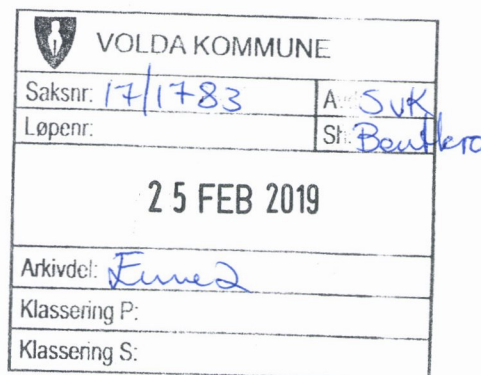 VOLDA KOMMUNE
Saksnr: 17/1783 A SvK
Løpenr: Sh:
25 FEB 2019
Arkivdel: Emne2
Klassering P:
Klassering S: